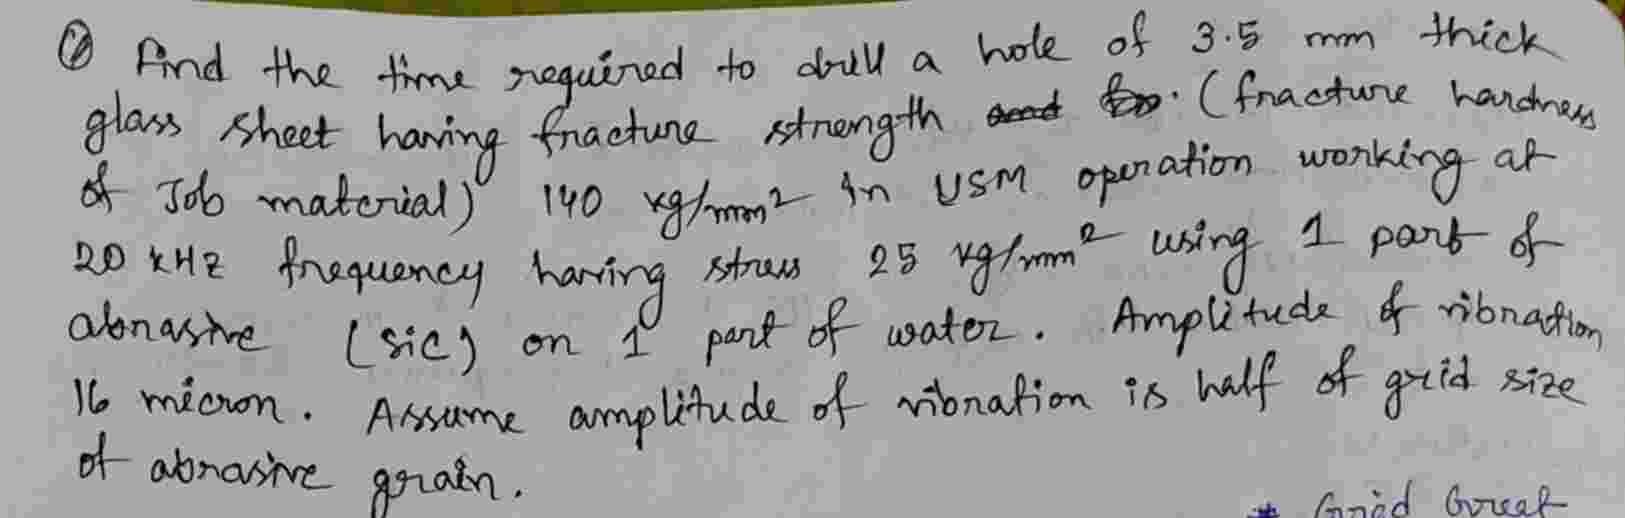 Find the time required to drill a hole of 3.5 mm thick
glass sheet having fracture strength and for. (fracture hardness
of Job material) 140 kg/mm² in USM operation working at
20 kHz frequency having stress 25 kg/mm² using 1 part of
abrasive (sic) on 1 part of water. Amplitude of vibration
16 micron. Assume amplitude of vibration is half of grid size
of abrasive grain.
* Grid Great